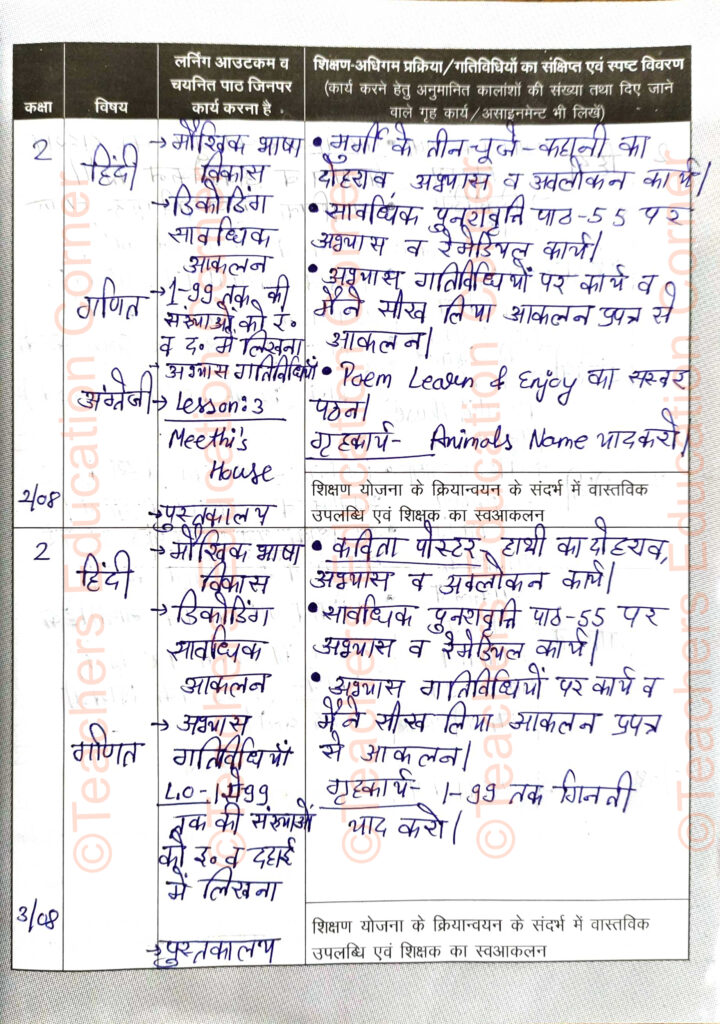 कक्षा
विषय
लर्निंग आउटकम व
चयनित पाठ जिनपर
कार्य करना है
शिक्षण-अधिगम प्रक्रिया/गतिविधियों का संक्षिप्त एवं स्पष्ट विवरण
(कार्य करने हेतु अनुमानित कालांशों की संख्या तथा दिए जाने
वाले गृह कार्य/असाइनमेन्ट भी लिखें)
2
हिंदी
→ मौखिक भाषा
विकास
→ डिकोडिंग
सावधिक
आकलन
गणित
→ 1-99 तक की
संख्याओं को इ०
व द० में लिखना
→ अभ्यास गतिविधियाँ
अंग्रेजी
→ Lesson:3
Meethi's
House
2/08
→ पुस्तकालय
• मुर्गी के तीन चूजे - कहानी का
दोहराव, अभ्यास व अवलोकन कार्य।
• सावधिक पुनरावृत्ति पाठ-55 पर
अभ्यास व रेमेडियल कार्य।
• अभ्यास गतिविधियों पर कार्य व
मैंने सीख लिया आकलन प्रपत्र से
आकलन।
• Poem Learn & Enjoy का सस्वर
पठन।
गृहकार्य- Animals Name याद करो।
शिक्षण योजना के क्रियान्वयन के संदर्भ में वास्तविक
उपलब्धि एवं शिक्षक का स्वआकलन
2
हिंदी
→ मौखिक भाषा
विकास
→ डिकोडिंग
सावधिक
आकलन
गणित
→ अभ्यास
गतिविधियाँ
L.O-1 से 99
तक की संख्याओं
को इ० व दहाई
में लिखना
3/08
→ पुस्तकालय
• कविता पोस्टर- हाथी का दोहराव,
अभ्यास व अवलोकन कार्य।
• सावधिक पुनरावृत्ति पाठ-55 पर
अभ्यास व रेमेडियल कार्य।
• अभ्यास गतिविधियों पर कार्य व
मैंने सीख लिया आकलन प्रपत्र
से आकलन।
गृहकार्य- 1-99 तक गिनती
याद करो।
शिक्षण योजना के क्रियान्वयन के संदर्भ में वास्तविक
उपलब्धि एवं शिक्षक का स्वआकलन
©Teachers Education Corner
©Teachers Education Corner
©Teachers Education Corner
©Teachers Education Corner